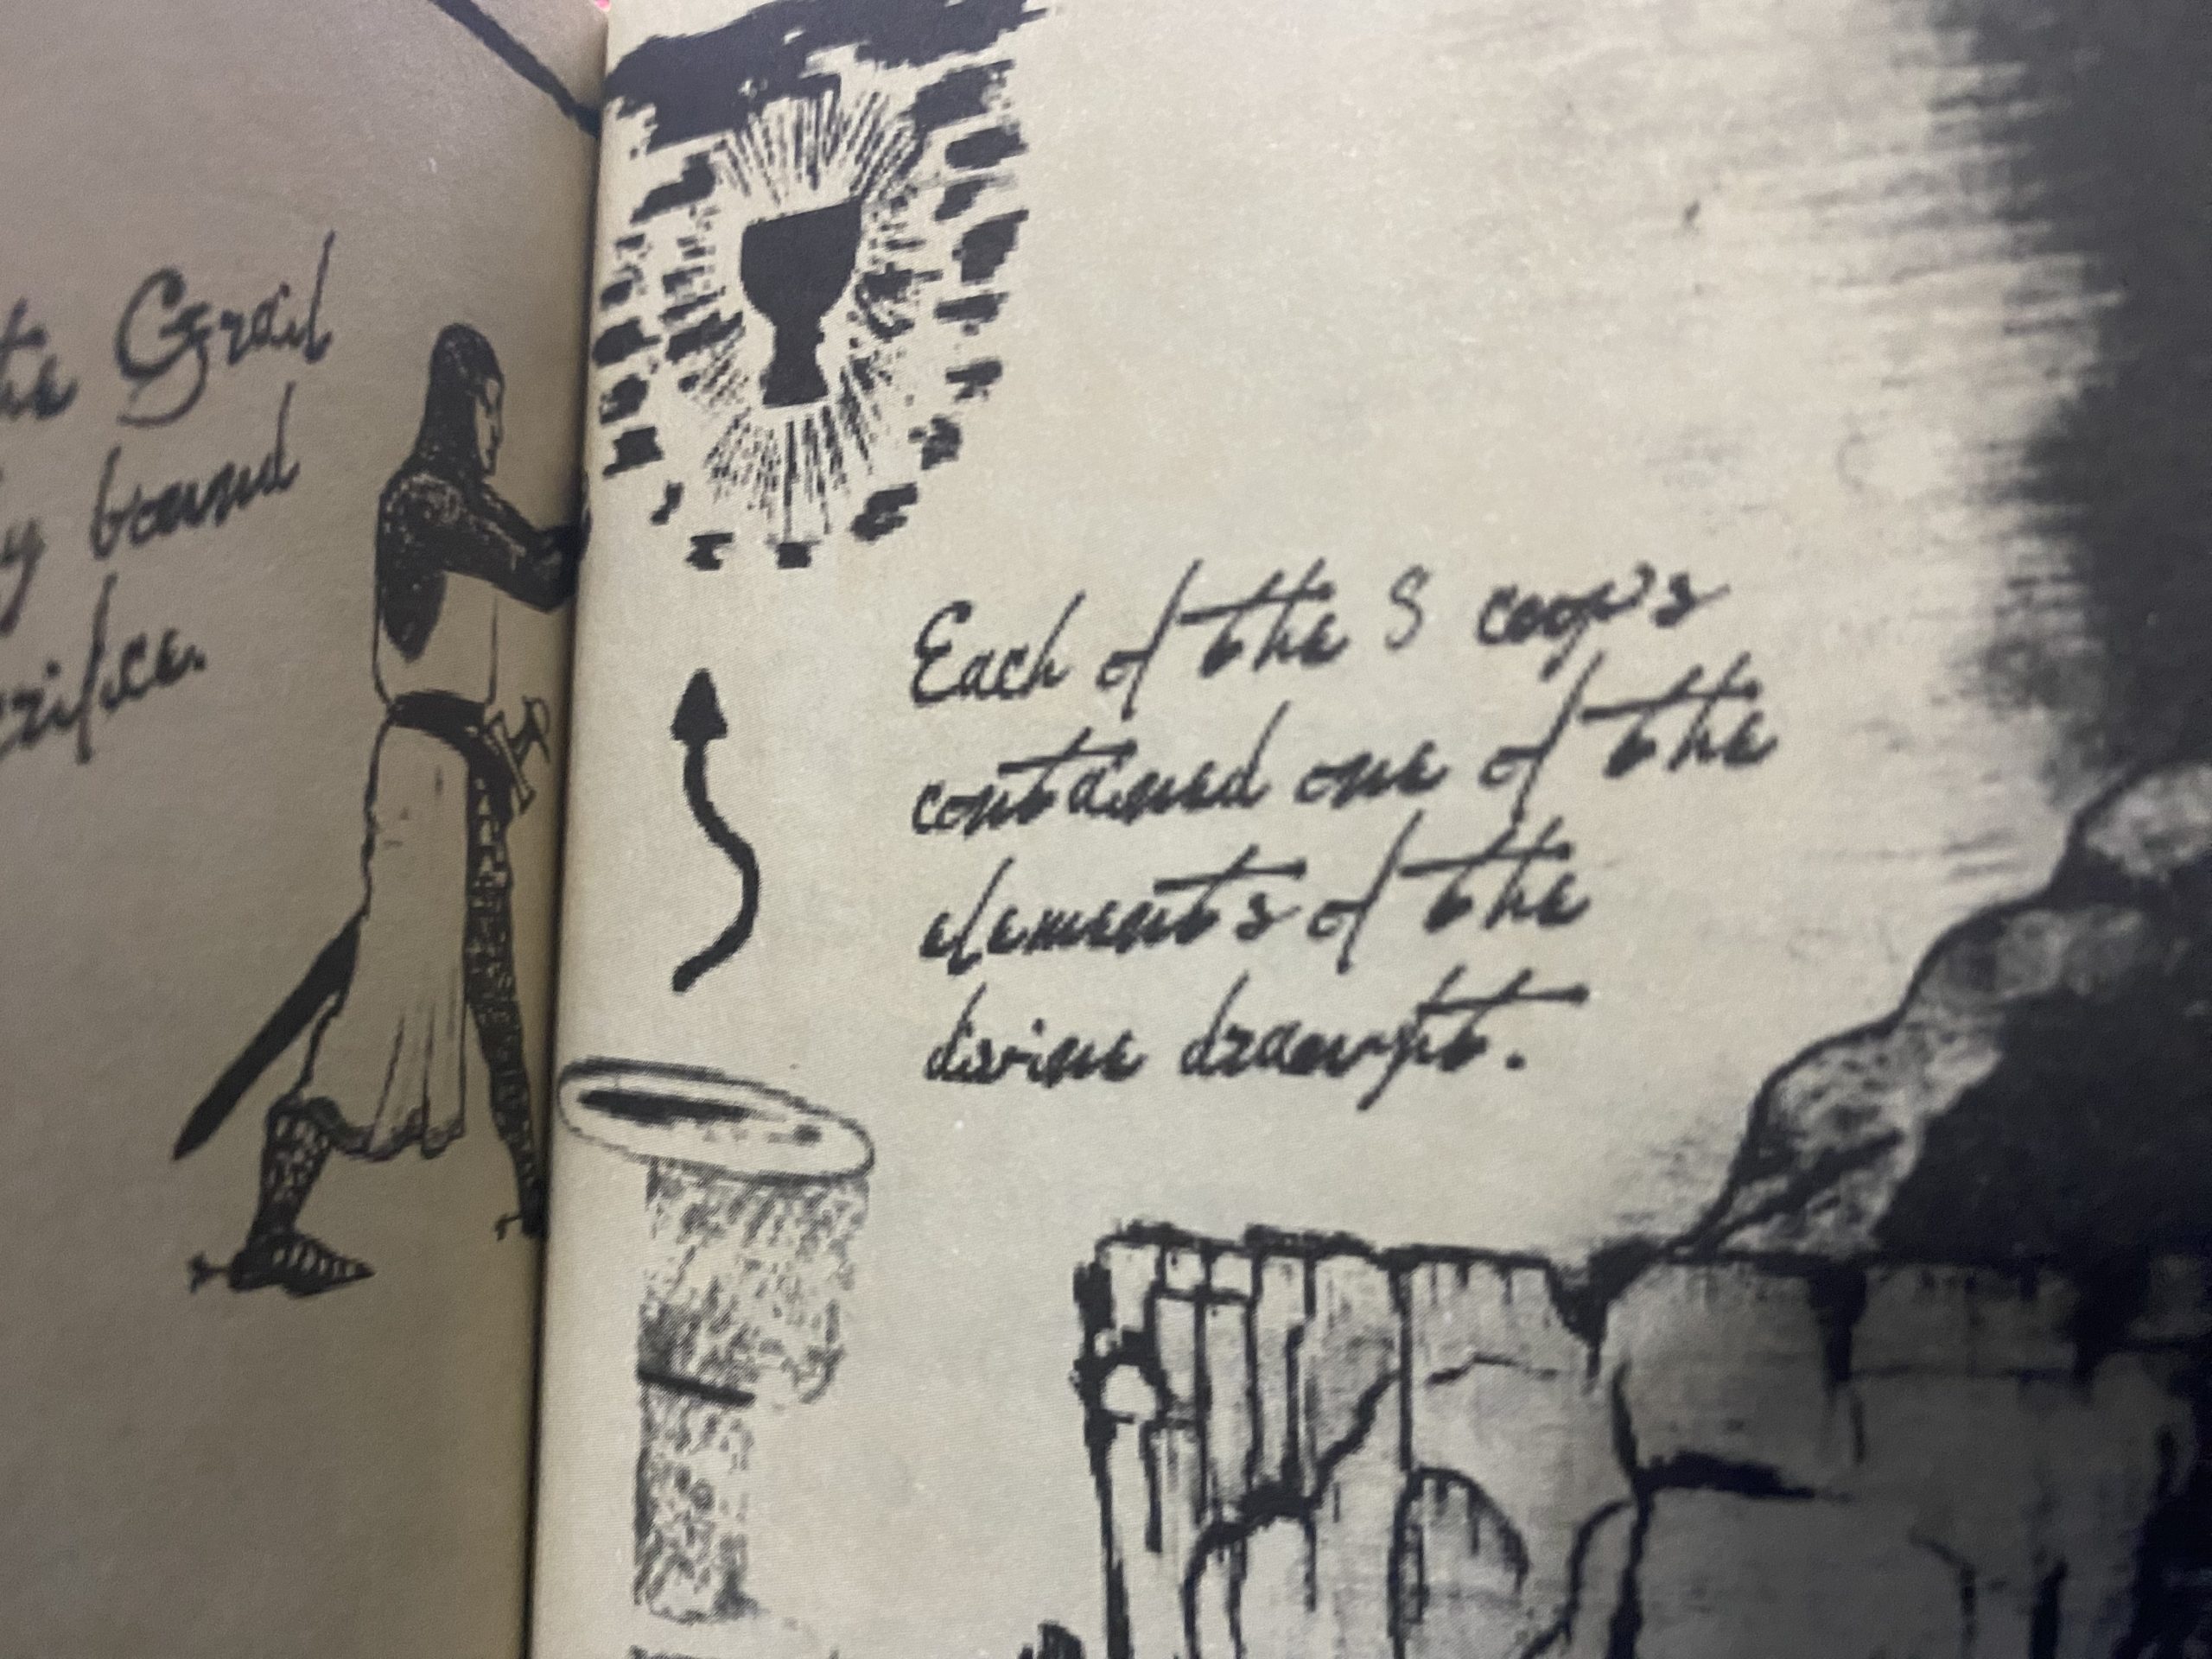 the Grail
y bound
rifice.
Each of the cups
contained one of the
elements of the
divine draught.